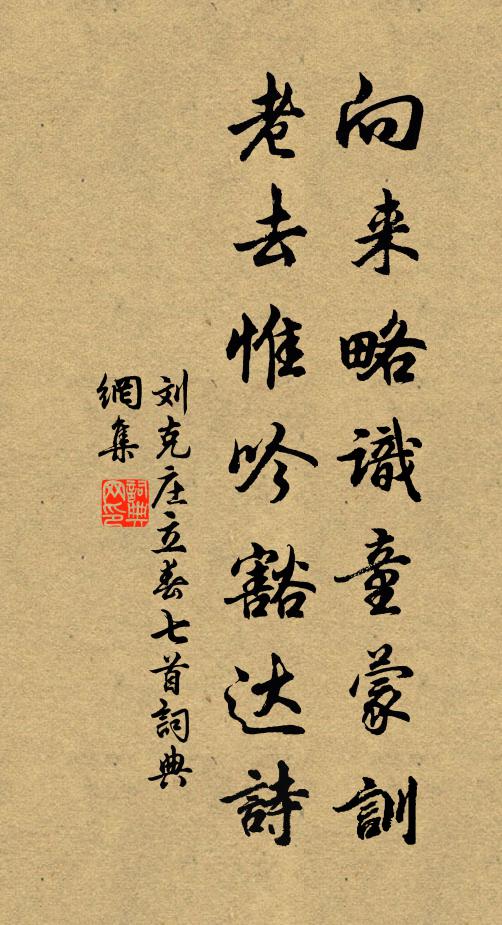 向来略識童蒙訓
老去惟吟豁达詩
刘克庄立春七首詞典
網集
詞典
网印